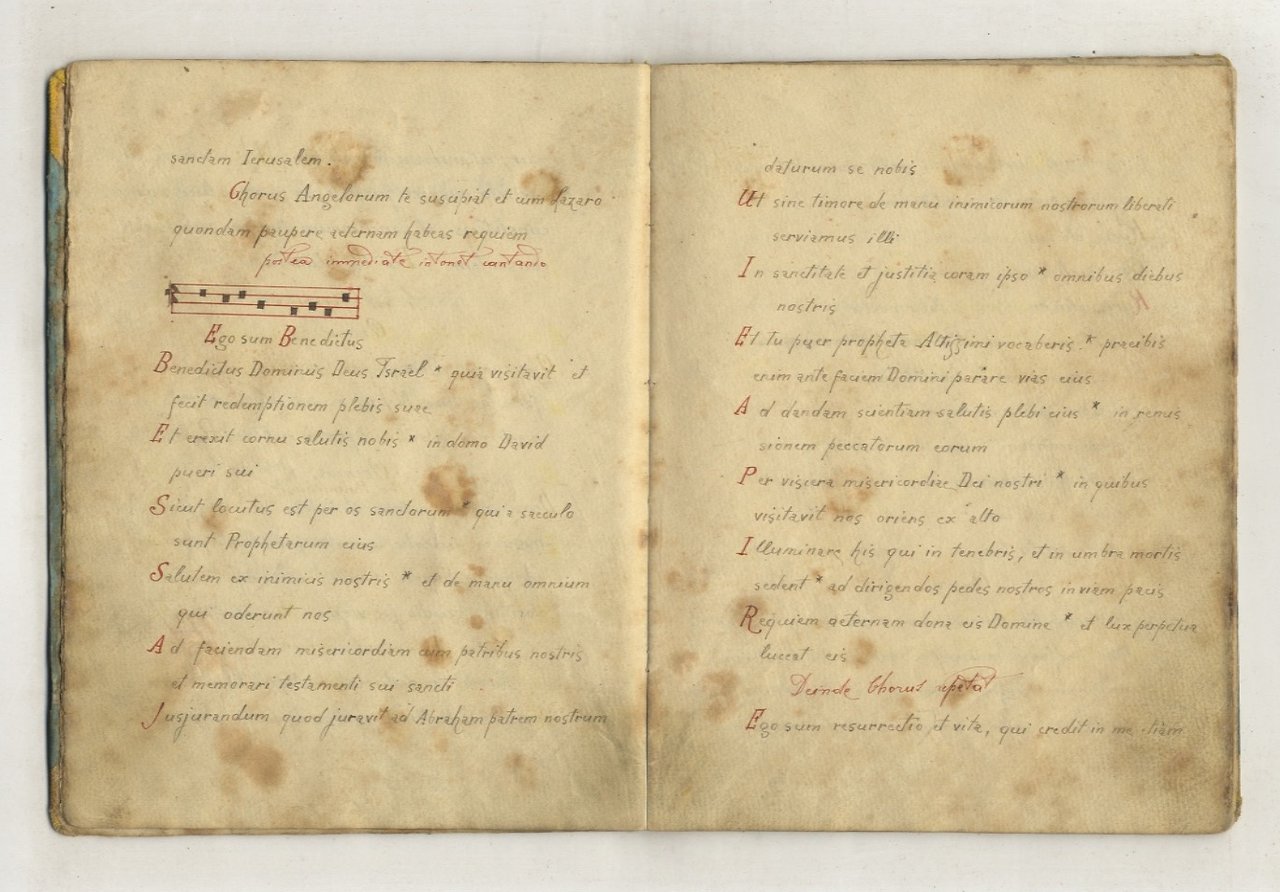 sanctam Ierusalem.
Chorus Angelorum te suscipiat et cum Lazaro
quondam paupere aeternam habeas requiem
postea immediate intonet cantando
Ego sum Benedictus
Benedictus Dominus Deus Israel * quia visitavit et
fecit redemptionem plebis suae
Et erexit cornu salutis nobis * in domo David
pueri sui
Sicut locutus est per os sanctorum * qui a saeculo
sunt Prophetarum eius
Salutem ex inimicis nostris * et de manu omnium
qui oderunt nos
Ad faciendam misericordiam cum patribus nostris
et memorari testamenti sui sancti
Jusjurandum quod juravit ad Abraham patrem nostrum
daturum se nobis
Ut sine timore de manu inimicorum nostrorum liberati
serviamus illi
In sanctitate et justitia coram ipso * omnibus diebus
nostris
Et tu puer propheta Altissimi vocaberis * praeibis
enim ante faciem Domini parare vias eius
Ad dandam scientiam salutis plebi eius * in remis
sionem peccatorum eorum
Per viscera misericordiae Dei nostri * in quibus
visitavit nos oriens ex alto
Illuminare his qui in tenebris, et in umbra mortis
sedent * ad dirigendos pedes nostros in viam pacis
Requiem aeternam dona eis Domine * et lux perpetua
luceat eis
Deinde Chorus repetat
Ego sum resurrectio et vita, qui credit in me etiam